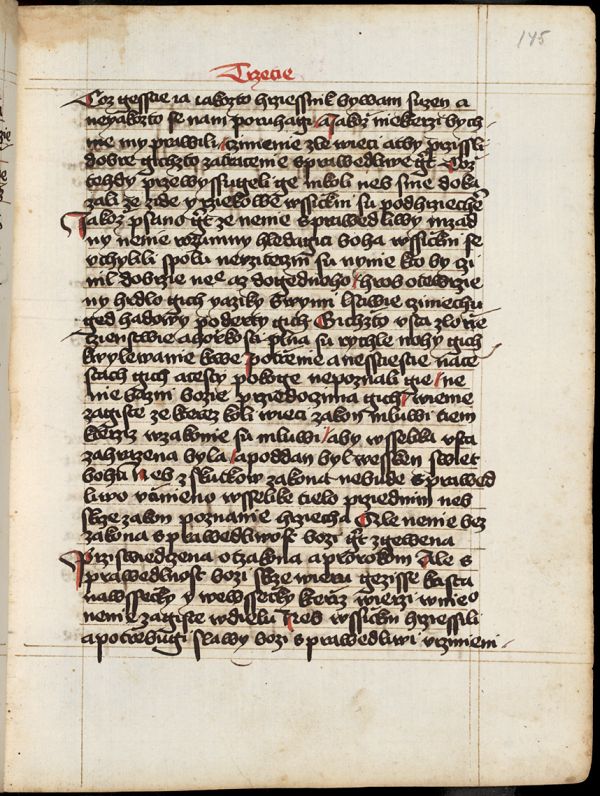 145
Trzecie
Coz gesscie ia iakozto hrziessnik bywam suzen a
neyakozto se nam poruhagi a iakoz niekterzi bych
nie my prawili czinienie zle wieci aby przissli
dobre gichzto zatracenie sprawedliwe gt Coz
tehdy przewyssugeli ge nikoli neb sme doka
zali ze zide y rziekowe wssickni su pod hrziechem
Jakoz psano gt ze nenie sprawedliwy nizad
ny nenie rozumny hledagici boha wssickni se
vchylili spolu nevziteczni su nenie kto by czi
nil dobrzie nenie az do gednoho hrob otewrzie
ny hrdlo gich yaziky swymi lstiwie cziniechu
ged hadowy pod rty gich Gichzto vsta zlorze
czienstwie a horkosti plna su rychle nohy gich
k wylewanie krwe potrzenie a nesstiestie na ce
stach gich a cesty pokoge nepoznali gie ne
nie bazni bozie przed oczima gich wieme
zagiste ze kterez koli wieci zakon mluwi tiem
kterziz w zakonie su mluwi aby wsselika vsta
zahrazena byla a poddan byl wesken swiet
bohu neb z skutkow zakona nebude sprawed
liwo vczinieno wsselike tielo przied nim neb
skrze zakon poznanie hrziecha Ale nenie bez
zakona sprawedlnost bozi gt zgewena
przisswiedczena ot zakona a prorokow Ale s
prawedlnost bozi skrze wieru gezisse krista
na wssecky y we wssecky kterziz wierzi w nieo
nenie zagiste w dielu Neb wssickni hrziessili
a potrzebugi slawy bozi sprawedliwi vczinieni